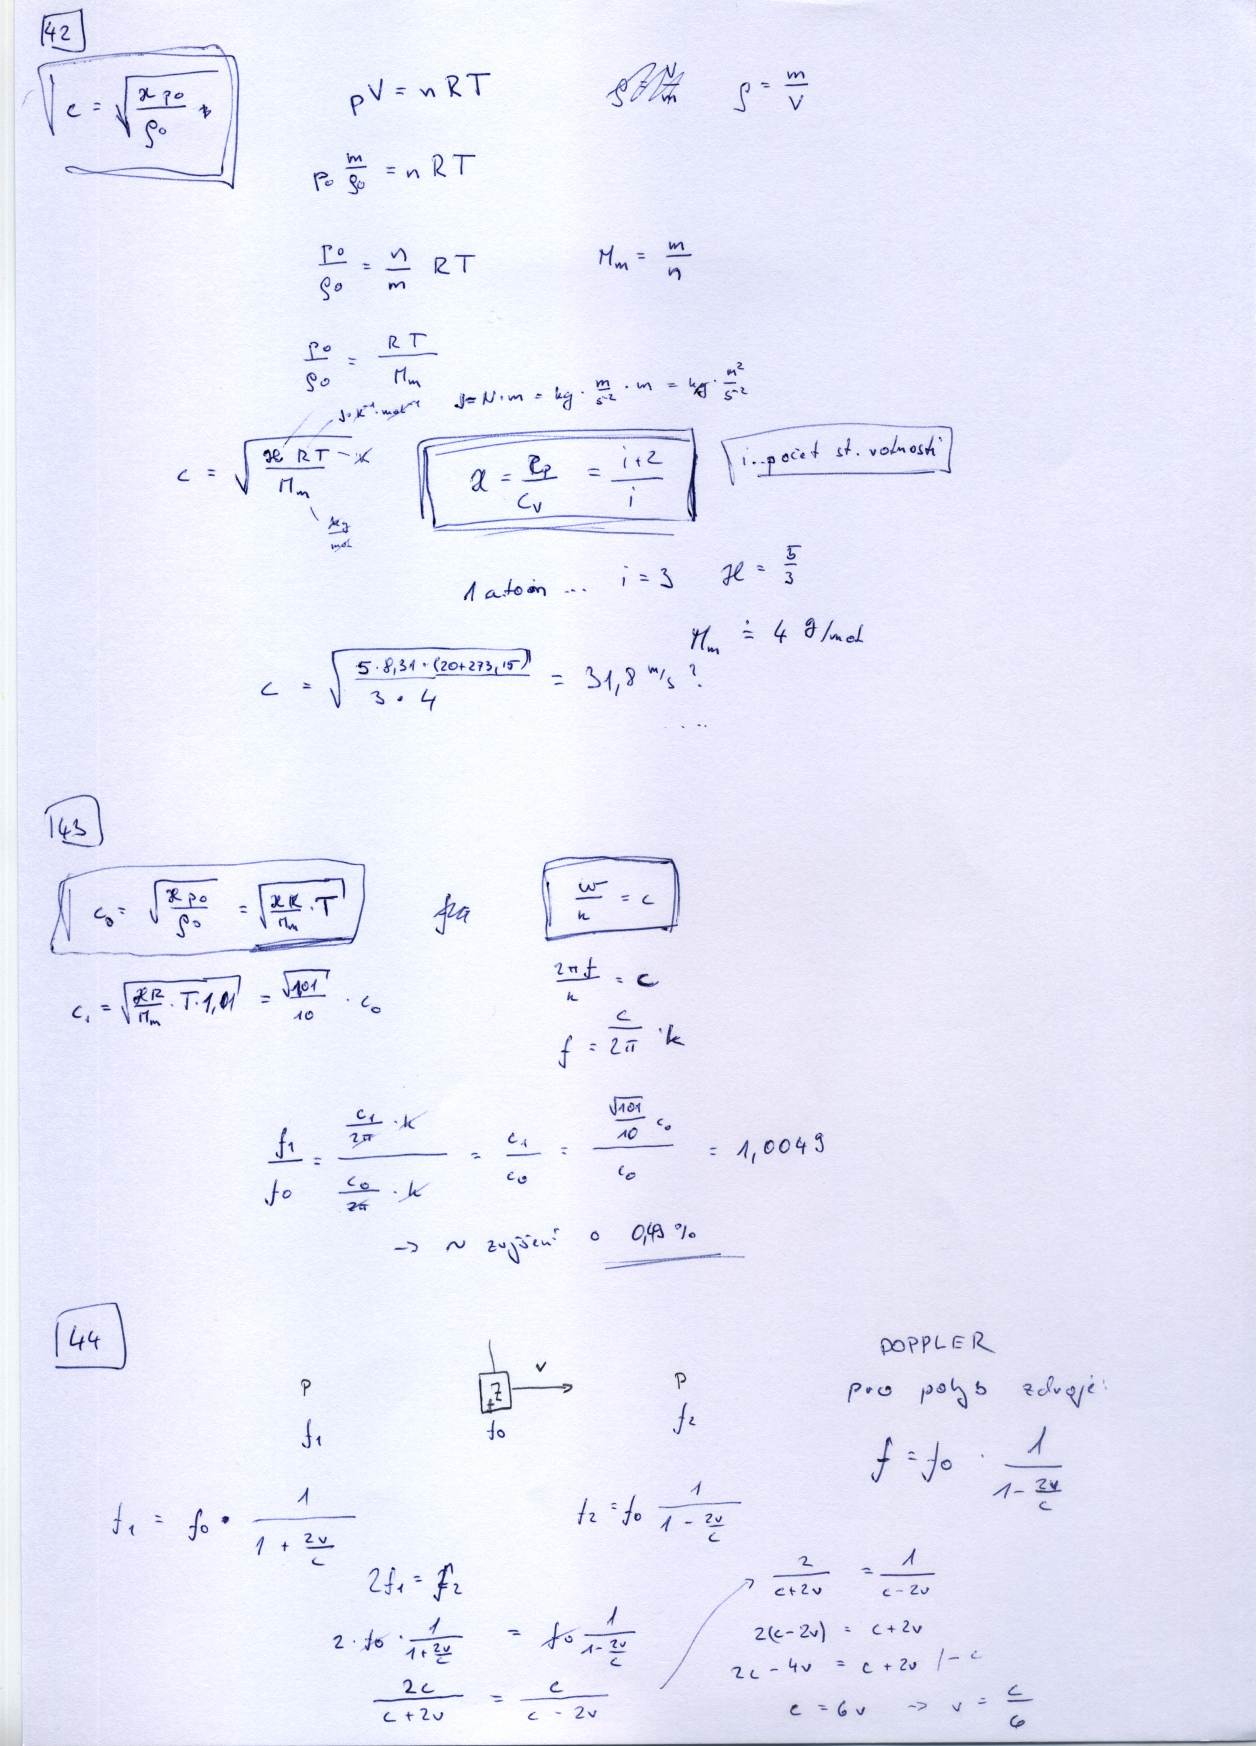 42
c = √(ϰ p₀ / ρ₀)
pV = nRT
ρ = m/V
p₀ m/ρ₀ = nRT
p₀/ρ₀ = n/m RT
Mₘ = m/n
p₀/ρ₀ = RT/Mₘ
J·K⁻¹·mol⁻¹
J = N·m = kg · m/s² · m = kg · m²/s²
c = √(ϰRT/Mₘ) – K
kg/mol
ϰ = cₚ/cᵥ = (i+2)/i
i...počet st. volnosti
1 atom ... i = 3 ϰ = 5/3
Mₘ ≐ 4 g/mol
c = √(5·8,31·(20+273,15) / 3·4) = 31,8 m/s ?
....
43
c₀ = √(ϰp₀/ρ₀) = √(ϰR/Mₘ · T)
fra
ω/k = c
c₁ = √(ϰR/Mₘ · T · 1,01) = √101/10 · c₀
2πf/k = c
f = c/2π · k
f₁/f₀ = (c₁/2π · k)/(c₀/2π · k) = c₁/c₀ = (√101/10 c₀)/c₀ = 1,0049
→ ~ zvýšení o 0,49 %
44
P Z v P
f₁ f₀ f₂
DOPPLER
pro pohyb zdroje:
f = f₀ · 1/(1 - 2v/c)
f₁ = f₀ · 1/(1 + 2v/c)
f₂ = f₀ 1/(1 - 2v/c)
2f₁ = f₂
2 · f₀ · 1/(1 + 2v/c) = f₀ 1/(1 - 2v/c)
2c/(c+2v) = c/(c-2v)
→ 2/(c+2v) = 1/(c-2v)
2(c-2v) = c+2v
2c - 4v = c + 2v /-c
c = 6v → v = c/6